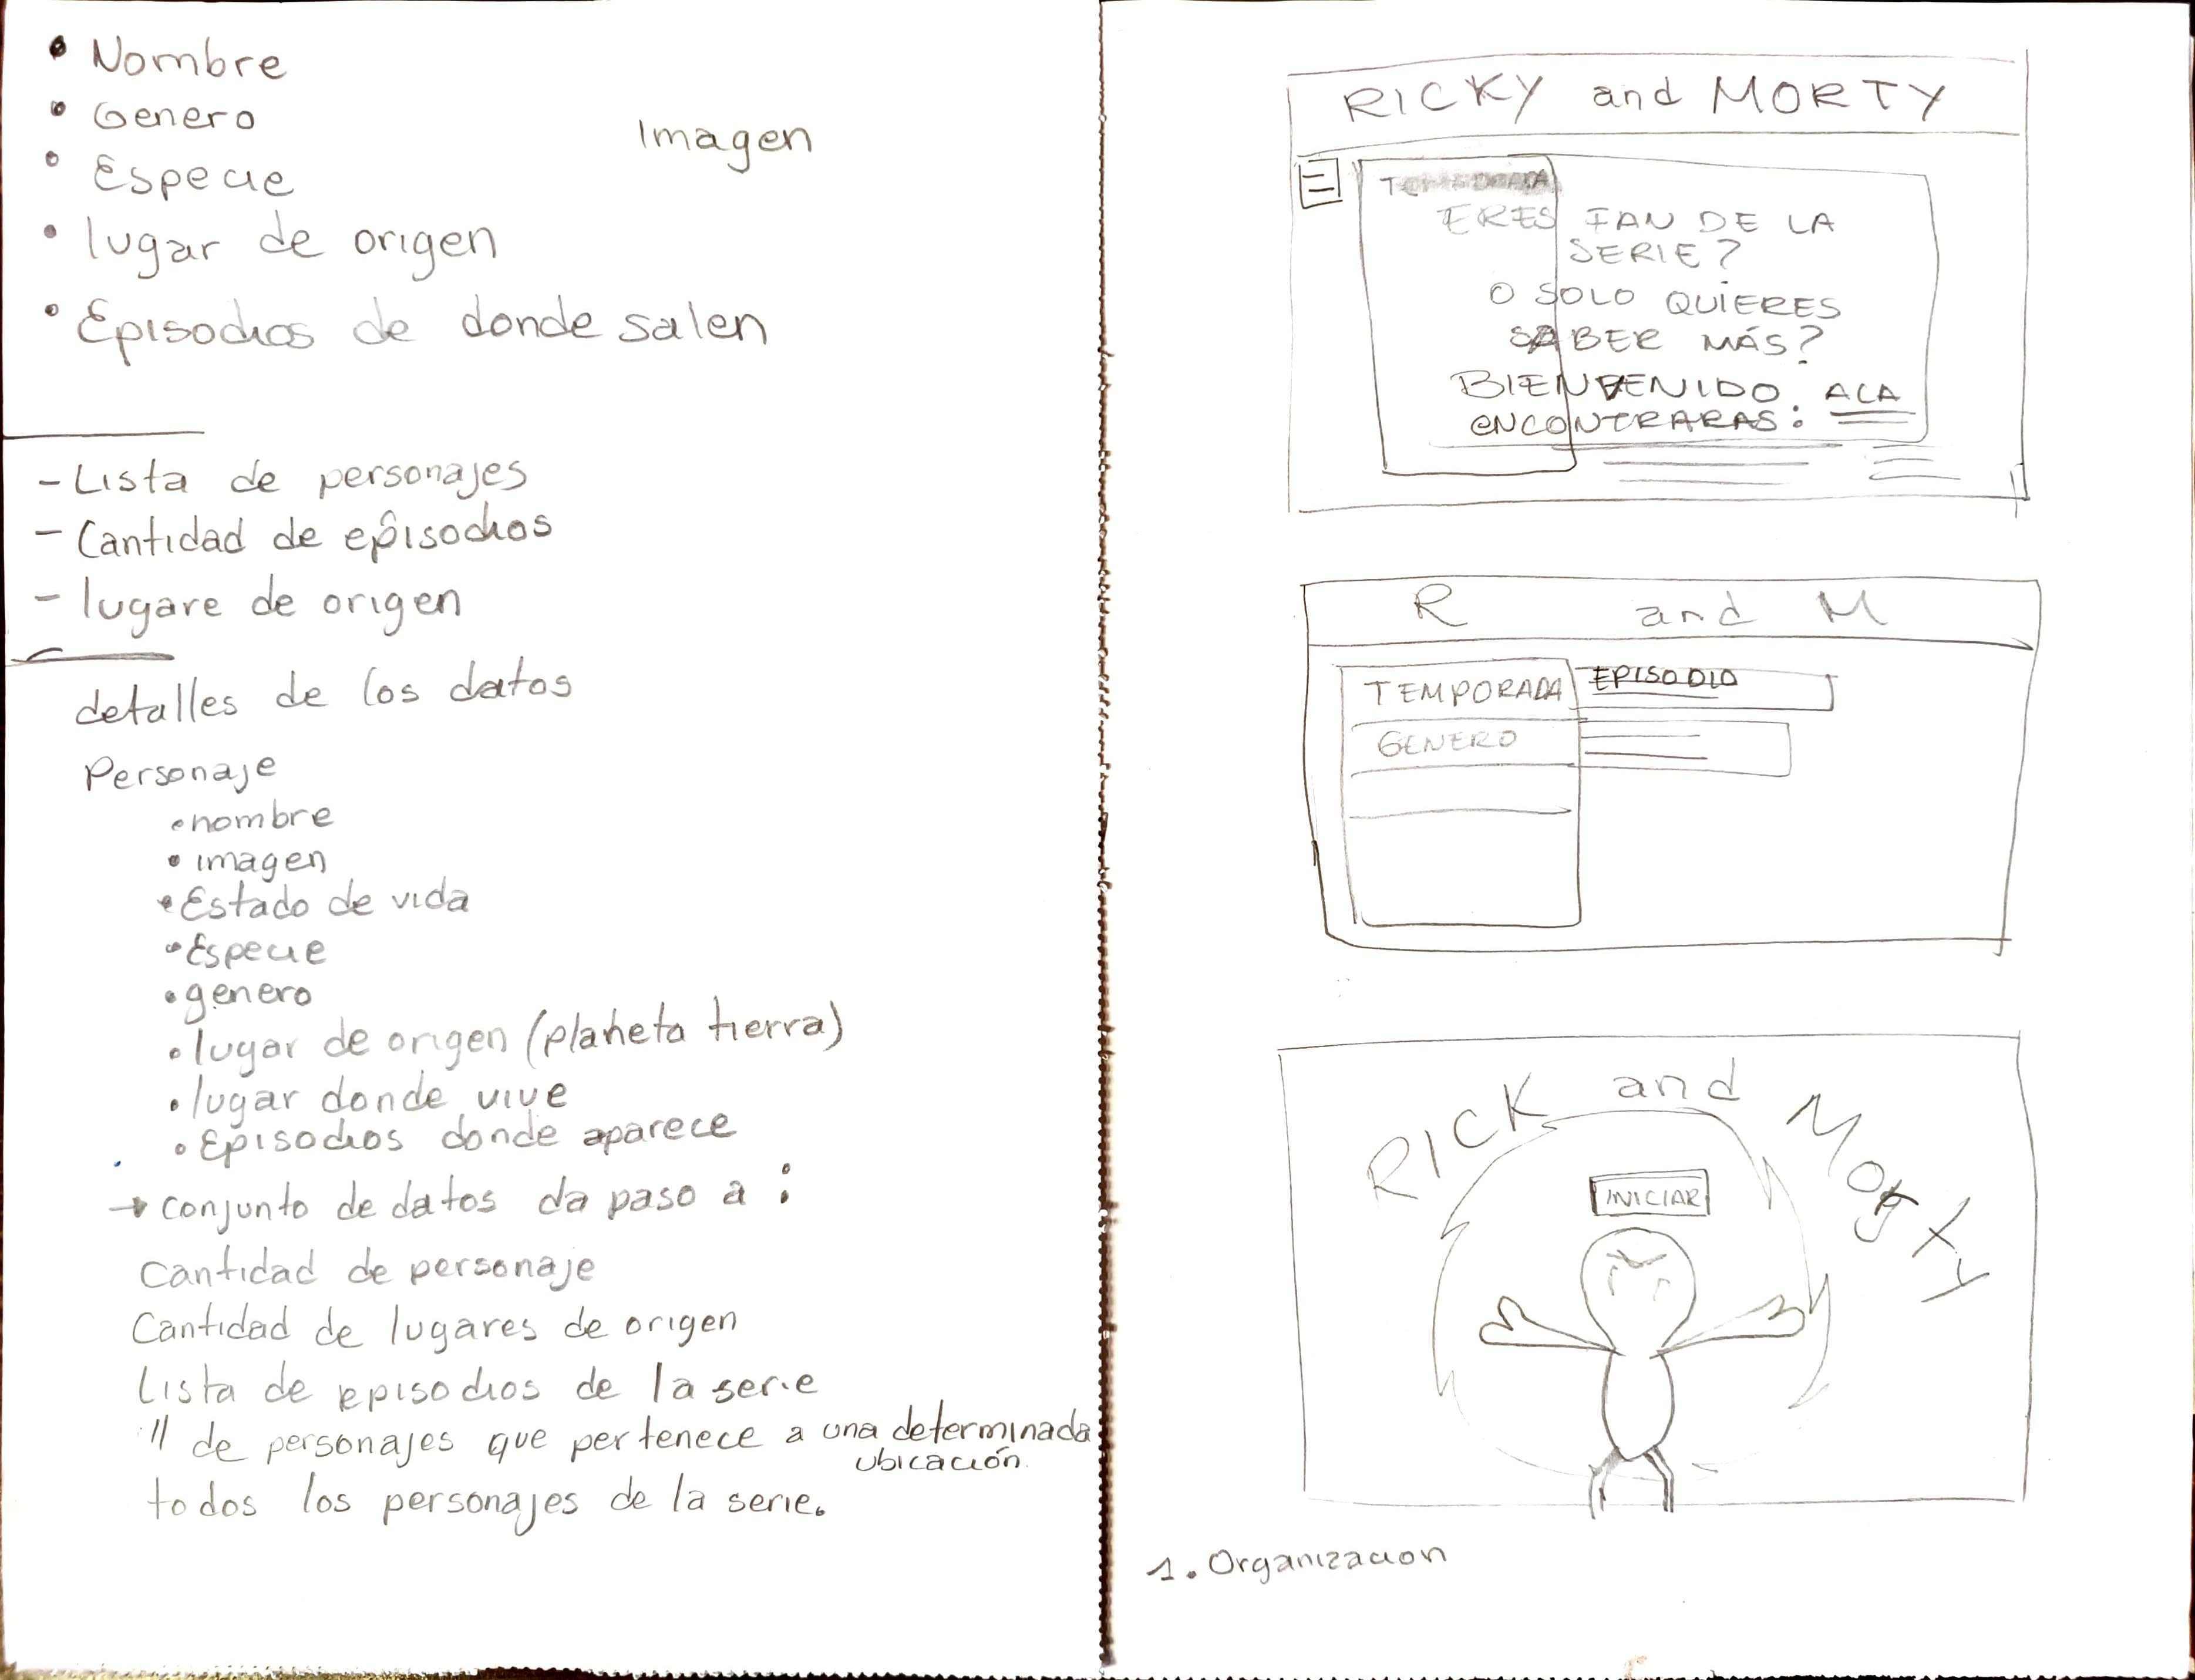 • Nombre
• Genero
Imagen
• Especie
• lugar de origen
• Episodios de donde salen
- Lista de personajes
- Cantidad de episodios
- lugare de origen
detalles de los datos
Personaje
• nombre
• imagen
• Estado de vida
• Especie
• genero
• lugar de origen (planeta tierra)
• lugar donde vive
• Episodios donde aparece
→ conjunto de datos da paso a :
Cantidad de personaje
Cantidad de lugares de origen
Lista de episodios de la serie
" de personajes que pertenece a una determinada
ubicación.
todos los personajes de la serie.
RICKY and MORTY
TEMPORADA
ERES FAN DE LA
SERIE?
O SOLO QUIERES
SABER MÁS?
BIENVENIDO. ACA
ENCONTRARAS:
R and M
TEMPORADA EPISODIO
GENERO
RICK and Morty
INICIAR
1. Organizacion